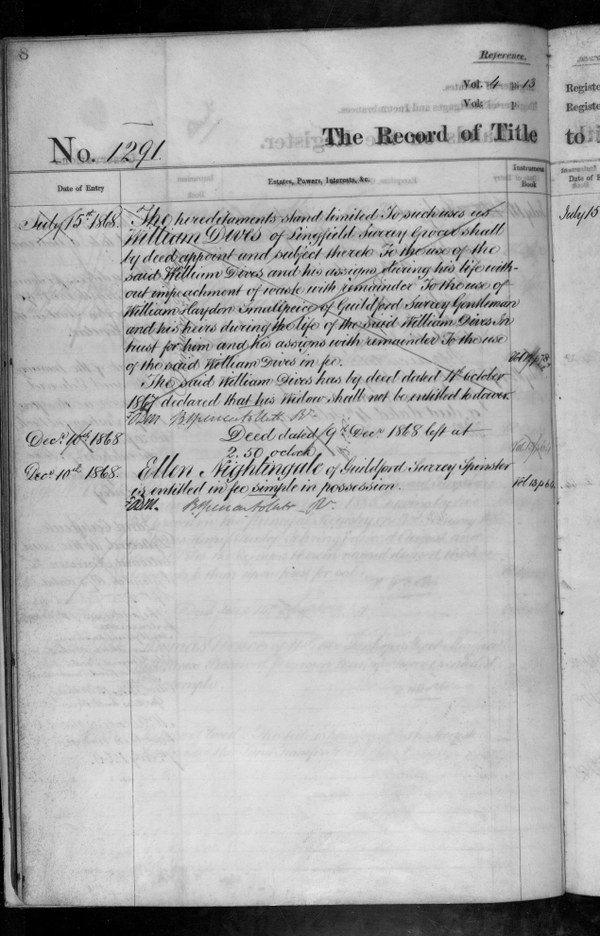 8
Reference.
Vol. 4 p. 13
Vol. p.
No. 1291.
The Record of Title
to
Date of Entry
Estates, Powers, Interests, &c.
Instrument Book
July 15th 1868
The hereditaments stand limited To such uses as
William Dives of Lingfield Surrey Grocer shall
by deed appoint and subject thereto To the use of the
said William Dives and his assigns during his life with-
out impeachment of waste with remainder To the use of
William Haydon Smallpeice of Guildford Surrey Gentleman
and his heirs during the life of the said William Dives In
trust for him and his assigns with remainder To the use
of the said William Dives in fee.
The said William Dives has by deed dated 4th October
1867 declared that his widow shall not be entitled to dower.
Decr. 10th 1868
Deed dated 9th Decr. 1868 left at
2.50 oclock
Decr. 10th 1868.
Ellen Nightingale of Guildford Surrey Spinster
is entitled in fee simple in possession.
Registe
Registe
July 15